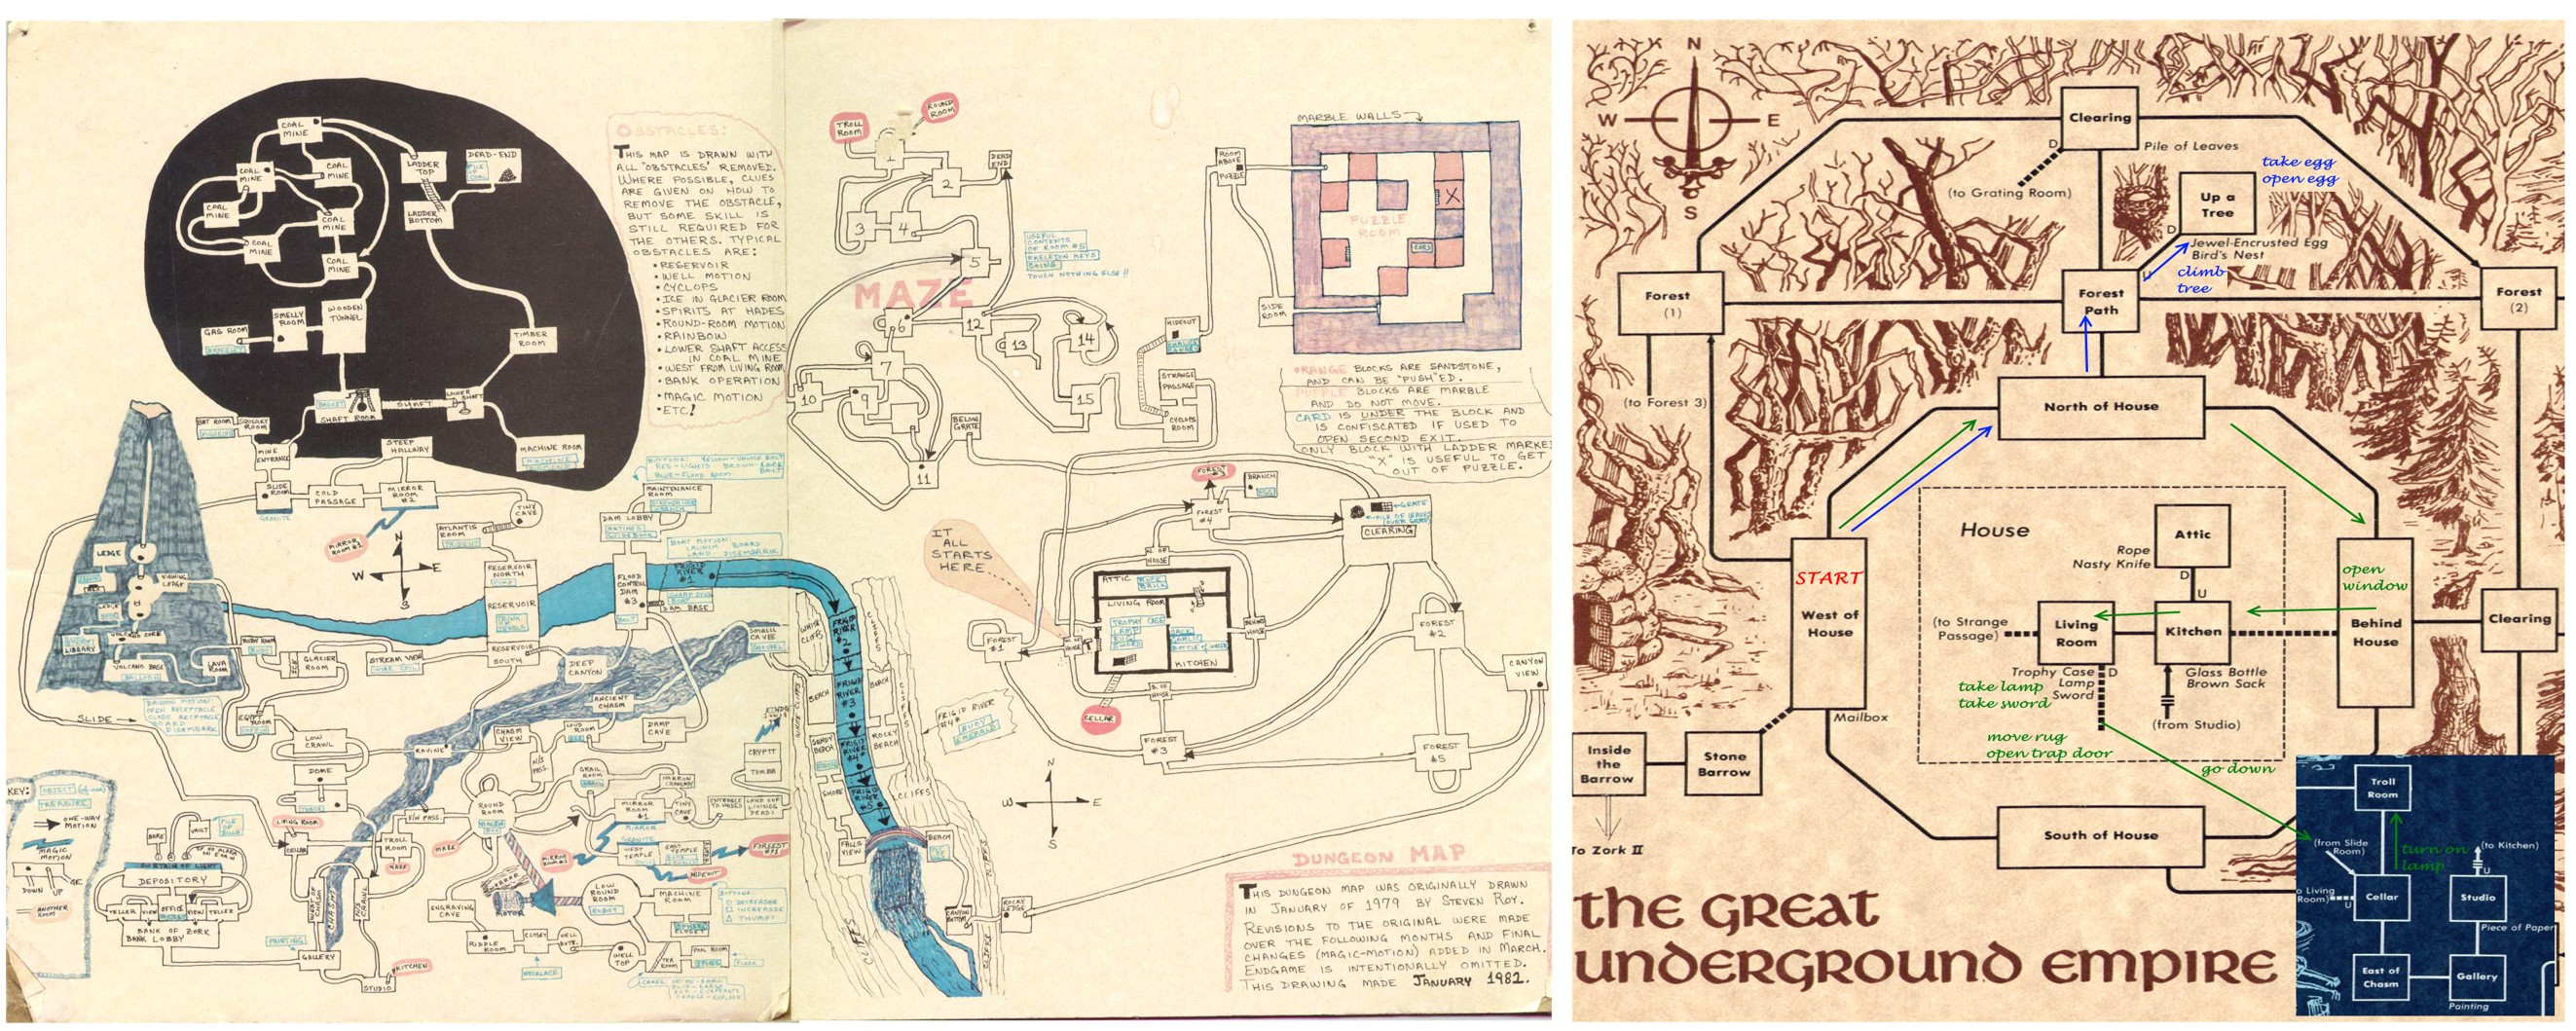 COAL
MINE
COAL
MINE
COAL
MINE
COAL
MINE
COAL
MINE
COAL
MINE
COAL
MINE
LADDER
TOP
DEAD-END
LADDER
BOTTOM
GAS ROOM
SMELLY
ROOM
WOODEN
TUNNEL
TIMBER
ROOM
BASKET
SHAFT ROOM
SHAFT
LOWER
SHAFT
MACHINE ROOM
BAT ROOM
SQUEAKY
ROOM
MINE
ENTRANCE
STEEP
HALLWAY
SLIDE
ROOM
GRANITE
COLD
PASSAGE
MIRROR
ROOM
#2
MIRROR
ROOM #1
OBSTACLES:
THIS MAP IS DRAWN WITH
ALL "OBSTACLES" REMOVED.
WHERE POSSIBLE, CLUES
ARE GIVEN ON HOW TO
REMOVE THE OBSTACLE,
BUT SOME SKILL IS
STILL REQUIRED FOR
THE OTHERS. TYPICAL
OBSTACLES ARE:
• RESERVOIR
• WELL MOTION
• CYCLOPS
• ICE IN GLACIER ROOM
• SPIRITS AT HADES
• ROUND-ROOM MOTION
• RAINBOW
• LOWER SHAFT ACCESS
IN COAL MINE
• WEST FROM LIVING ROOM
• BANK OPERATION
• MAGIC MOTION
• ETC!
ATLANTIS
ROOM
TRIDENT
TINY
CAVE
MAINTENANCE
ROOM
DAM LOBBY
MATCHES
GUIDEBOOK
BOAT MOTION:
LAUNCH BOARD
LAND DISEMBARK
N
W
E
S
RESERVOIR
NORTH
RESERVOIR
TRUNK
JEWELS
RESERVOIR
SOUTH
FLOOD
CONTROL
DAM
#3
BOLT
DAM BASE
FRIGID
RIVER
#1
LEDGE
VIEWING
LEDGE
LIBRARY
VOLCANO BASE
LAVA
ROOM
RUBY ROOM
GLACIER
ROOM
STREAM VIEW
DEEP
CANYON
ANCIENT
CHASM
SLIDE
EGYPT
ROOM
LOW
CRAWL
RAVINE
CHASM
VIEW
LOUD
ROOM
DAMP
CAVE
DOME
N/S
PASS.
CRYPT
TOMB
KEY:
OBJECT
TREASURE
ONE-WAY
MOTION
MAGIC
MOTION
DOWN
UP
ANOTHER
ROOM
TORCH
ROUND
ROOM
GRAIL
ROOM
MIRROR
ROOM #1
TINY
CAVE
LIVING ROOM
CELLAR
E/W PASS.
TROLL
ROOM
MAZE
MAZE
VAULT
PILE
OF
BILLS
CURTAIN OF LIGHT
DEPOSITORY
TELLER
VIEW
OFFICE
VIEW
TELLER
BANK OF ZORK
BANK LOBBY
MIRROR
GRANITE
WEST
TEMPLE
EAST
TEMPLE
FOREST
#1
HIDEOUT
ENGRAVING
CAVE
MOTOR
LOW
ROUND
ROOM
ROBOT
MACHINE
ROOM
RIDDLE
ROOM
NECKLACE
WELL
TOP
TEA
ROOM
POOL ROOM
PAINTING
GALLERY
STUDIO
KITCHEN
TROLL
ROOM
ROUND
ROOM
1
2
DEAD
END
3
4
5
MAZE
6
12
13
14
7
10
9
15
11
BELOW
GRATE
USEFUL
CONTENTS
OF ROOM #5
SKELETON KEYS
COINS
TOUCH NOTHING ELSE!!
HIDEOUT
STRANGE
PASSAGE
CYCLOPS
ROOM
ROOM
ABOVE
PUZZLE
SIDE
ROOM
MARBLE WALLS
PUZZLE
ROOM
CARD
X
ORANGE BLOCKS ARE SANDSTONE,
AND CAN BE "PUSH"ED.
PURPLE BLOCKS ARE MARBLE
AND DO NOT MOVE.
CARD IS UNDER THE BLOCK AND
IS CONFISCATED IF USED TO
OPEN SECOND EXIT.
ONLY BLOCK WITH LADDER MARKE
"X" IS USEFUL TO GET
OUT OF PUZZLE.
IT
ALL
STARTS
HERE...
FOREST
#3
FOREST
#4
BRANCH
GRATE
CLEARING
N. OF
HOUSE
ATTIC
ROPE
BRICK
LIVING ROOM
TROPHY CASE
LAMP
RUG
SWORD
SACK
GARLIC
BOTTLE OF WATER
KITCHEN
BEHIND
HOUSE
W. OF
HOUSE
S. OF
HOUSE
CELLAR
FOREST
#1
FOREST
#2
FOREST
#3
FOREST
#5
CANYON
VIEW
WHITE
CLIFFS
CLIFFS
FRIGID
RIVER
#2
FRIGID
RIVER
#3
FRIGID
RIVER
#4
FRIGID
RIVER
#5
BEACH
BEACH
SANDY
BEACH
ROCKY
BEACH
SHORE
CLIFFS
FRIGID RIVER
#4
BUOY
EMERALD
FALLS
VIEW
BEACH
CANYON
BOTTOM
ROCKY
LEDGE
N
W
E
S
DUNGEON MAP
THIS DUNGEON MAP WAS ORIGINALLY DRAWN
IN JANUARY OF 1979 BY STEVEN ROY.
REVISIONS TO THE ORIGINAL WERE MADE
OVER THE FOLLOWING MONTHS AND FINAL
CHANGES (MAGIC-MOTION) ADDED IN MARCH.
ENDGAME IS INTENTIONALLY OMITTED.
THIS DRAWING MADE JANUARY 1982.
N
W
E
S
Clearing
D
Pile of Leaves
(to Grating Room)
take egg
open egg
Up a
Tree
D
Jewel-Encrusted Egg
Bird's Nest
U
climb
tree
Forest
(1)
Forest
Path
Forest
(2)
(to Forest 3)
North of House
START
West of
House
House
Attic
Rope
Nasty Knife
D
U
open
window
(to Strange
Passage)
Living
Room
Kitchen
Behind
House
Clearing
Trophy Case
Lamp
Sword
D
Glass Bottle
Brown Sack
take lamp
take sword
(from Studio)
Mailbox
move rug
open trap door
go down
Inside
the
Barrow
Stone
Barrow
To Zork II
South of House
Troll
Room
(from Slide
Room)
turn on
lamp
(to Kitchen)
U
o Living
Room)
U
Cellar
Studio
Piece of Paper
East of
Chasm
Gallery
Painting
the GREAT
UNDERGROUND EMPIRE